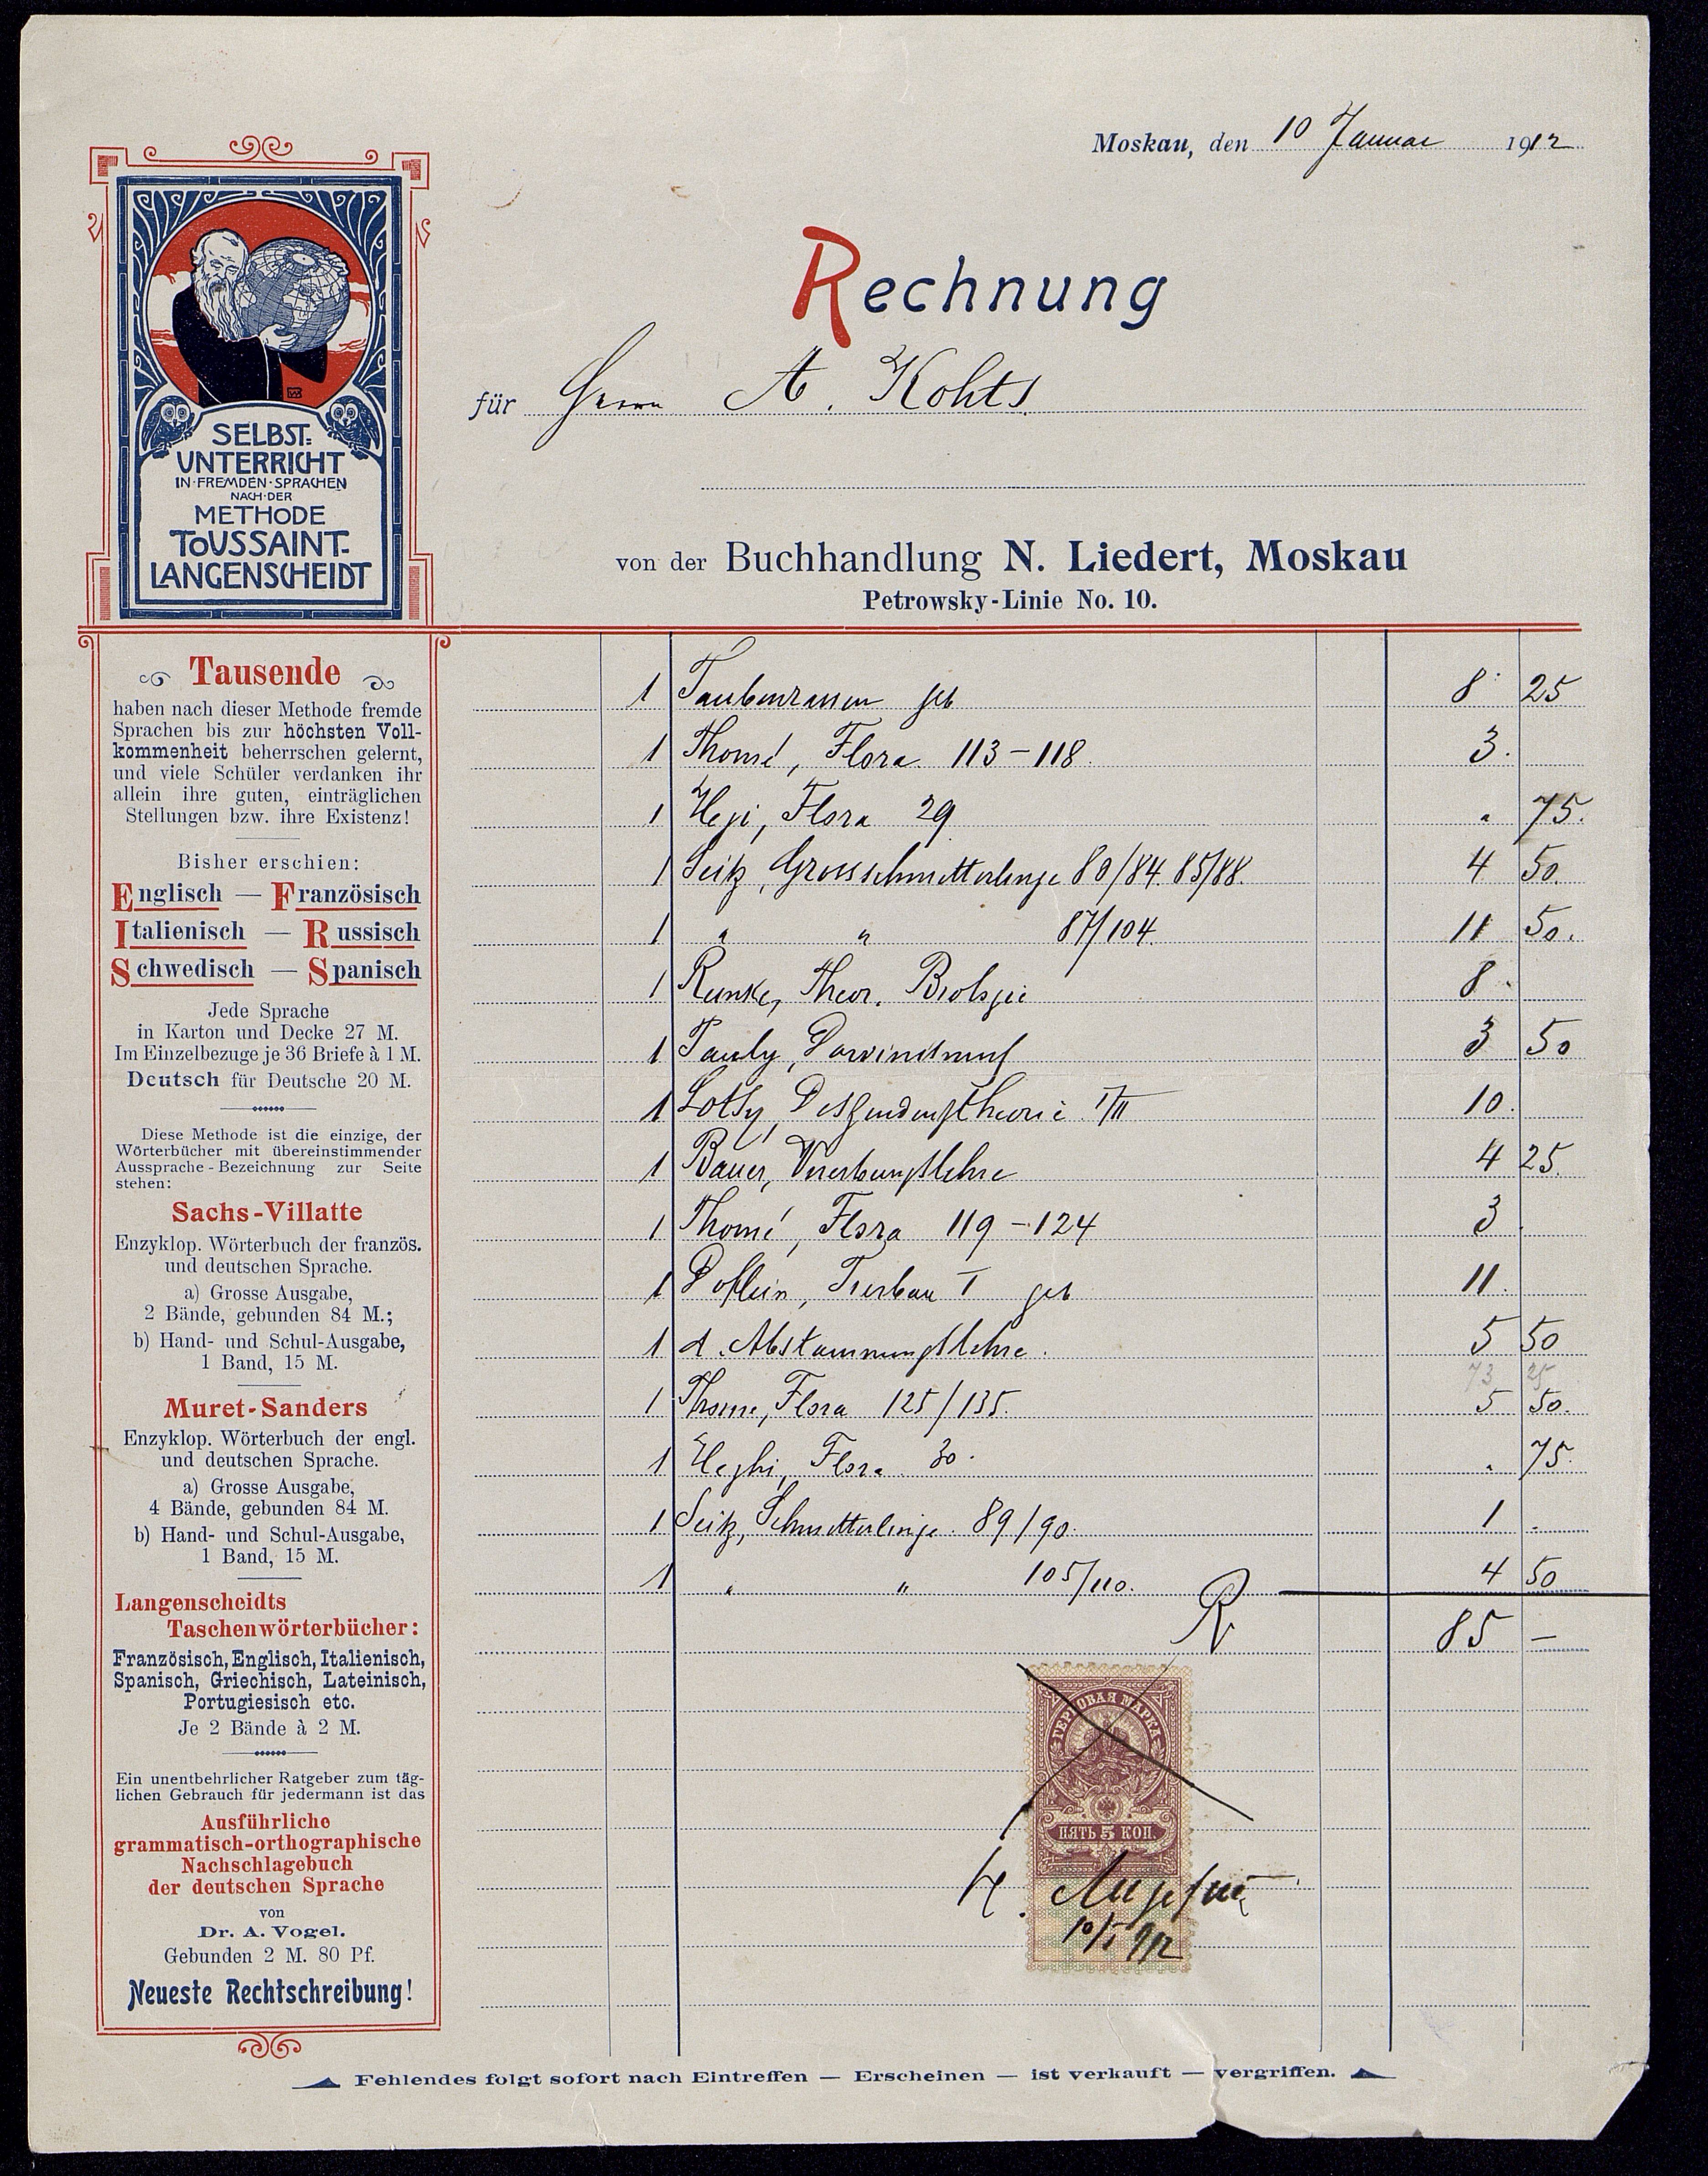 Moskau, den 10 Januar 1912
Rechnung
für Herrn A. Kohts
von der Buchhandlung N. Liedert, Moskau
Petrowsky-Linie No. 10.
SELBST-
UNTERRICHT
IN·FREMDEN·SPRACHEN
NACH·DER
METHODE
TOUSSAINT-
LANGENSCHEIDT
Tausende
haben nach dieser Methode fremde
Sprachen bis zur höchsten Voll-
kommenheit beherrschen gelernt,
und viele Schüler verdanken ihr
allein ihre guten, einträglichen
Stellungen bzw. ihre Existenz!
Bisher erschien:
Englisch — Französisch
Italienisch — Russisch
Schwedisch — Spanisch
Jede Sprache
in Karton und Decke 27 M.
Im Einzelbezuge je 36 Briefe à 1 M.
Deutsch für Deutsche 20 M.
Diese Methode ist die einzige, der
Wörterbücher mit übereinstimmender
Aussprache-Bezeichnung zur Seite
stehen:
Sachs-Villatte
Enzyklop. Wörterbuch der französ.
und deutschen Sprache.
a) Grosse Ausgabe,
2 Bände, gebunden 84 M.;
b) Hand- und Schul-Ausgabe,
1 Band, 15 M.
Muret-Sanders
Enzyklop. Wörterbuch der engl.
und deutschen Sprache.
a) Grosse Ausgabe,
4 Bände, gebunden 84 M.
b) Hand- und Schul-Ausgabe,
1 Band, 15 M.
Langenscheidts
Taschenwörterbücher:
Französisch, Englisch, Italienisch,
Spanisch, Griechisch, Lateinisch,
Portugiesisch etc.
Je 2 Bände à 2 M.
Ein unentbehrlicher Ratgeber zum täg-
lichen Gebrauch für jedermann ist das
Ausführliche
grammatisch-orthographische
Nachschlagebuch
der deutschen Sprache
von
Dr. A. Vogel.
Gebunden 2 M. 80 Pf.
Neueste Rechtschreibung!
1 Taubenrassen geb 8 25
1 Thomé, Flora 113-118. 3.
1 Hegi, Flora 29 " 75.
1 Seitz, Grossschmetterlinge 80/84. 85/88. 4 50.
1 " " 87/104. 11 50.
1 Reinke, Theor. Biologie 8.
1 Pauly, Darwinismus 3 50
1 Lotsy, Deszendenztheorie I/II 10.
1 Bauer, Vererbungslehre 4 25.
1 Thomé, Flora 119-124 3.
1 Doflein, Tierbau I geb 11.
1 d. Abstammungslehre. 5 50
73 25
1 Thome, Flora 125/135. 5 50.
1 Heghi, Flora 30. " 75.
1 Seitz, Schmetterlinge. 89/90. 1.
1 " " 105/110. 4 50
85 —
ГЕРБОВАЯ МАРКА
ПЯТЬ 5 КОП.
10/I 912
Fehlendes folgt sofort nach Eintreffen — Erscheinen — ist verkauft — vergriffen.